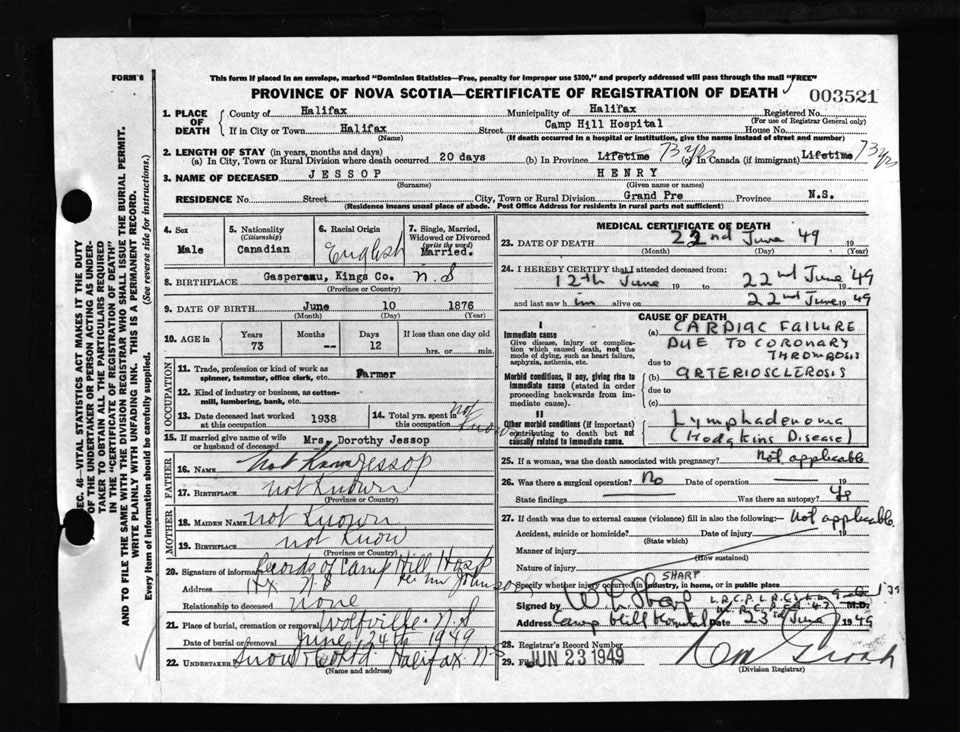 FORM 6
This form if placed in an envelope, marked "Dominion Statistics—Free, penalty for improper use $300," and properly addressed will pass through the mail "FREE"
PROVINCE OF NOVA SCOTIA—CERTIFICATE OF REGISTRATION OF DEATH
003521
1. PLACE OF DEATH
County of Halifax Municipality of Halifax Registered No.
(For use of Registrar General only)
If in City or Town Halifax Street Camp Hill Hospital House No.
(Name) (If death occurred in a hospital or institution, give the name instead of street and number)
2. LENGTH OF STAY (in years, months and days)
(a) In City, Town or Rural Division where death occurred 20 days (b) In Province Lifetime 73 yrs (c) In Canada (if immigrant) Lifetime 73 yrs
3. NAME OF DECEASED JESSOP HENRY
(Surname) (Given name or names)
RESIDENCE No. Street City, Town or Rural Division Grand Pre Province N.S.
(Residence means usual place of abode. Post Office Address for residents in rural parts not sufficient)
4. Sex Male
5. Nationality (Citizenship) Canadian
6. Racial Origin English
7. Single, Married, Widowed or Divorced (write the word) Married.
8. BIRTHPLACE Gaspereau, Kings Co. N.S
(Province or Country)
9. DATE OF BIRTH June 10 1876
(Month) (Day) (Year)
10. AGE in Years 73 Months -- Days 12 If less than one day old
hrs. or min.
OCCUPATION
11. Trade, profession or kind of work as spinner, teamster, office clerk, etc. Farmer
12. Kind of industry or business, as cotton-mill, lumbering, bank, etc.
13. Date deceased last worked at this occupation 1938
14. Total yrs. spent in this occupation not Know
15. If married give name of wife or husband of deceased Mrs. Dorothy Jessop
FATHER
16. Name Not Known Jessop
17. Birthplace not Known
(Province or Country)
MOTHER
18. Maiden Name not Known
19. Birthplace not Know
(Province or Country)
20. Signature of informant Records of Camp Hill Hosp
Address Hx N.S Johnson
Relationship to deceased none
21. Place of burial, cremation or removal Wolfville N.S
Date of burial or removal June 24th 1949
22. Undertaker Snow & Co Ltd. Halifax. N-S
(Name and address)
MEDICAL CERTIFICATE OF DEATH
23. DATE OF DEATH 22nd June 49 19
(Month) (Day)
24. I HEREBY CERTIFY that I attended deceased from:
12th June 19 to 22nd June '49
and last saw him alive on 22nd June 1949
CAUSE OF DEATH
I
Immediate cause
Give disease, injury or complication which caused death, not the mode of dying, such as heart failure, asphyxia, asthenia, etc.
(a) CARDIAC FAILURE
DUE TO CORONARY
THROMBOSIS
due to
Morbid conditions, if any, giving rise to immediate cause (stated in order proceeding backwards from immediate cause).
(b) ARTERIOSCLEROSIS
due to
(c)
II
Other morbid conditions (if important) contributing to death but not causally related to immediate cause.
Lymphadenoma
(Hodgkins Disease)
25. If a woman, was the death associated with pregnancy? Not applicable
26. Was there a surgical operation? No Date of operation 19
State findings Was there an autopsy? Yes
27. If death was due to external causes (violence) fill in also the following:— Not applicable.
Accident, suicide or homicide? Date of injury 19
(State which)
Manner of injury
(How sustained)
Nature of injury
Specify whether injury occurred in industry, in home, or in public place
SHARP
Signed by W Sharp M.D.
Address Camp Hill Hospital Date 23rd June 1949
28. Registrar's Record Number
29. Filed JUN 23 1949
(Division Registrar)
SEC. 46—VITAL STATISTICS ACT MAKES IT THE DUTY
OF THE UNDERTAKER OR PERSON ACTING AS UNDER-
TAKER TO OBTAIN ALL THE PARTICULARS REQUIRED
IN THE "CERTIFICATE OF REGISTRATION OF DEATH"
AND TO FILE THE SAME WITH THE DIVISION REGISTRAR WHO SHALL ISSUE THE BURIAL PERMIT.
WRITE PLAINLY WITH UNFADING INK. THIS IS A PERMANENT RECORD.
Every item of information should be carefully supplied. (See reverse side for instructions.)